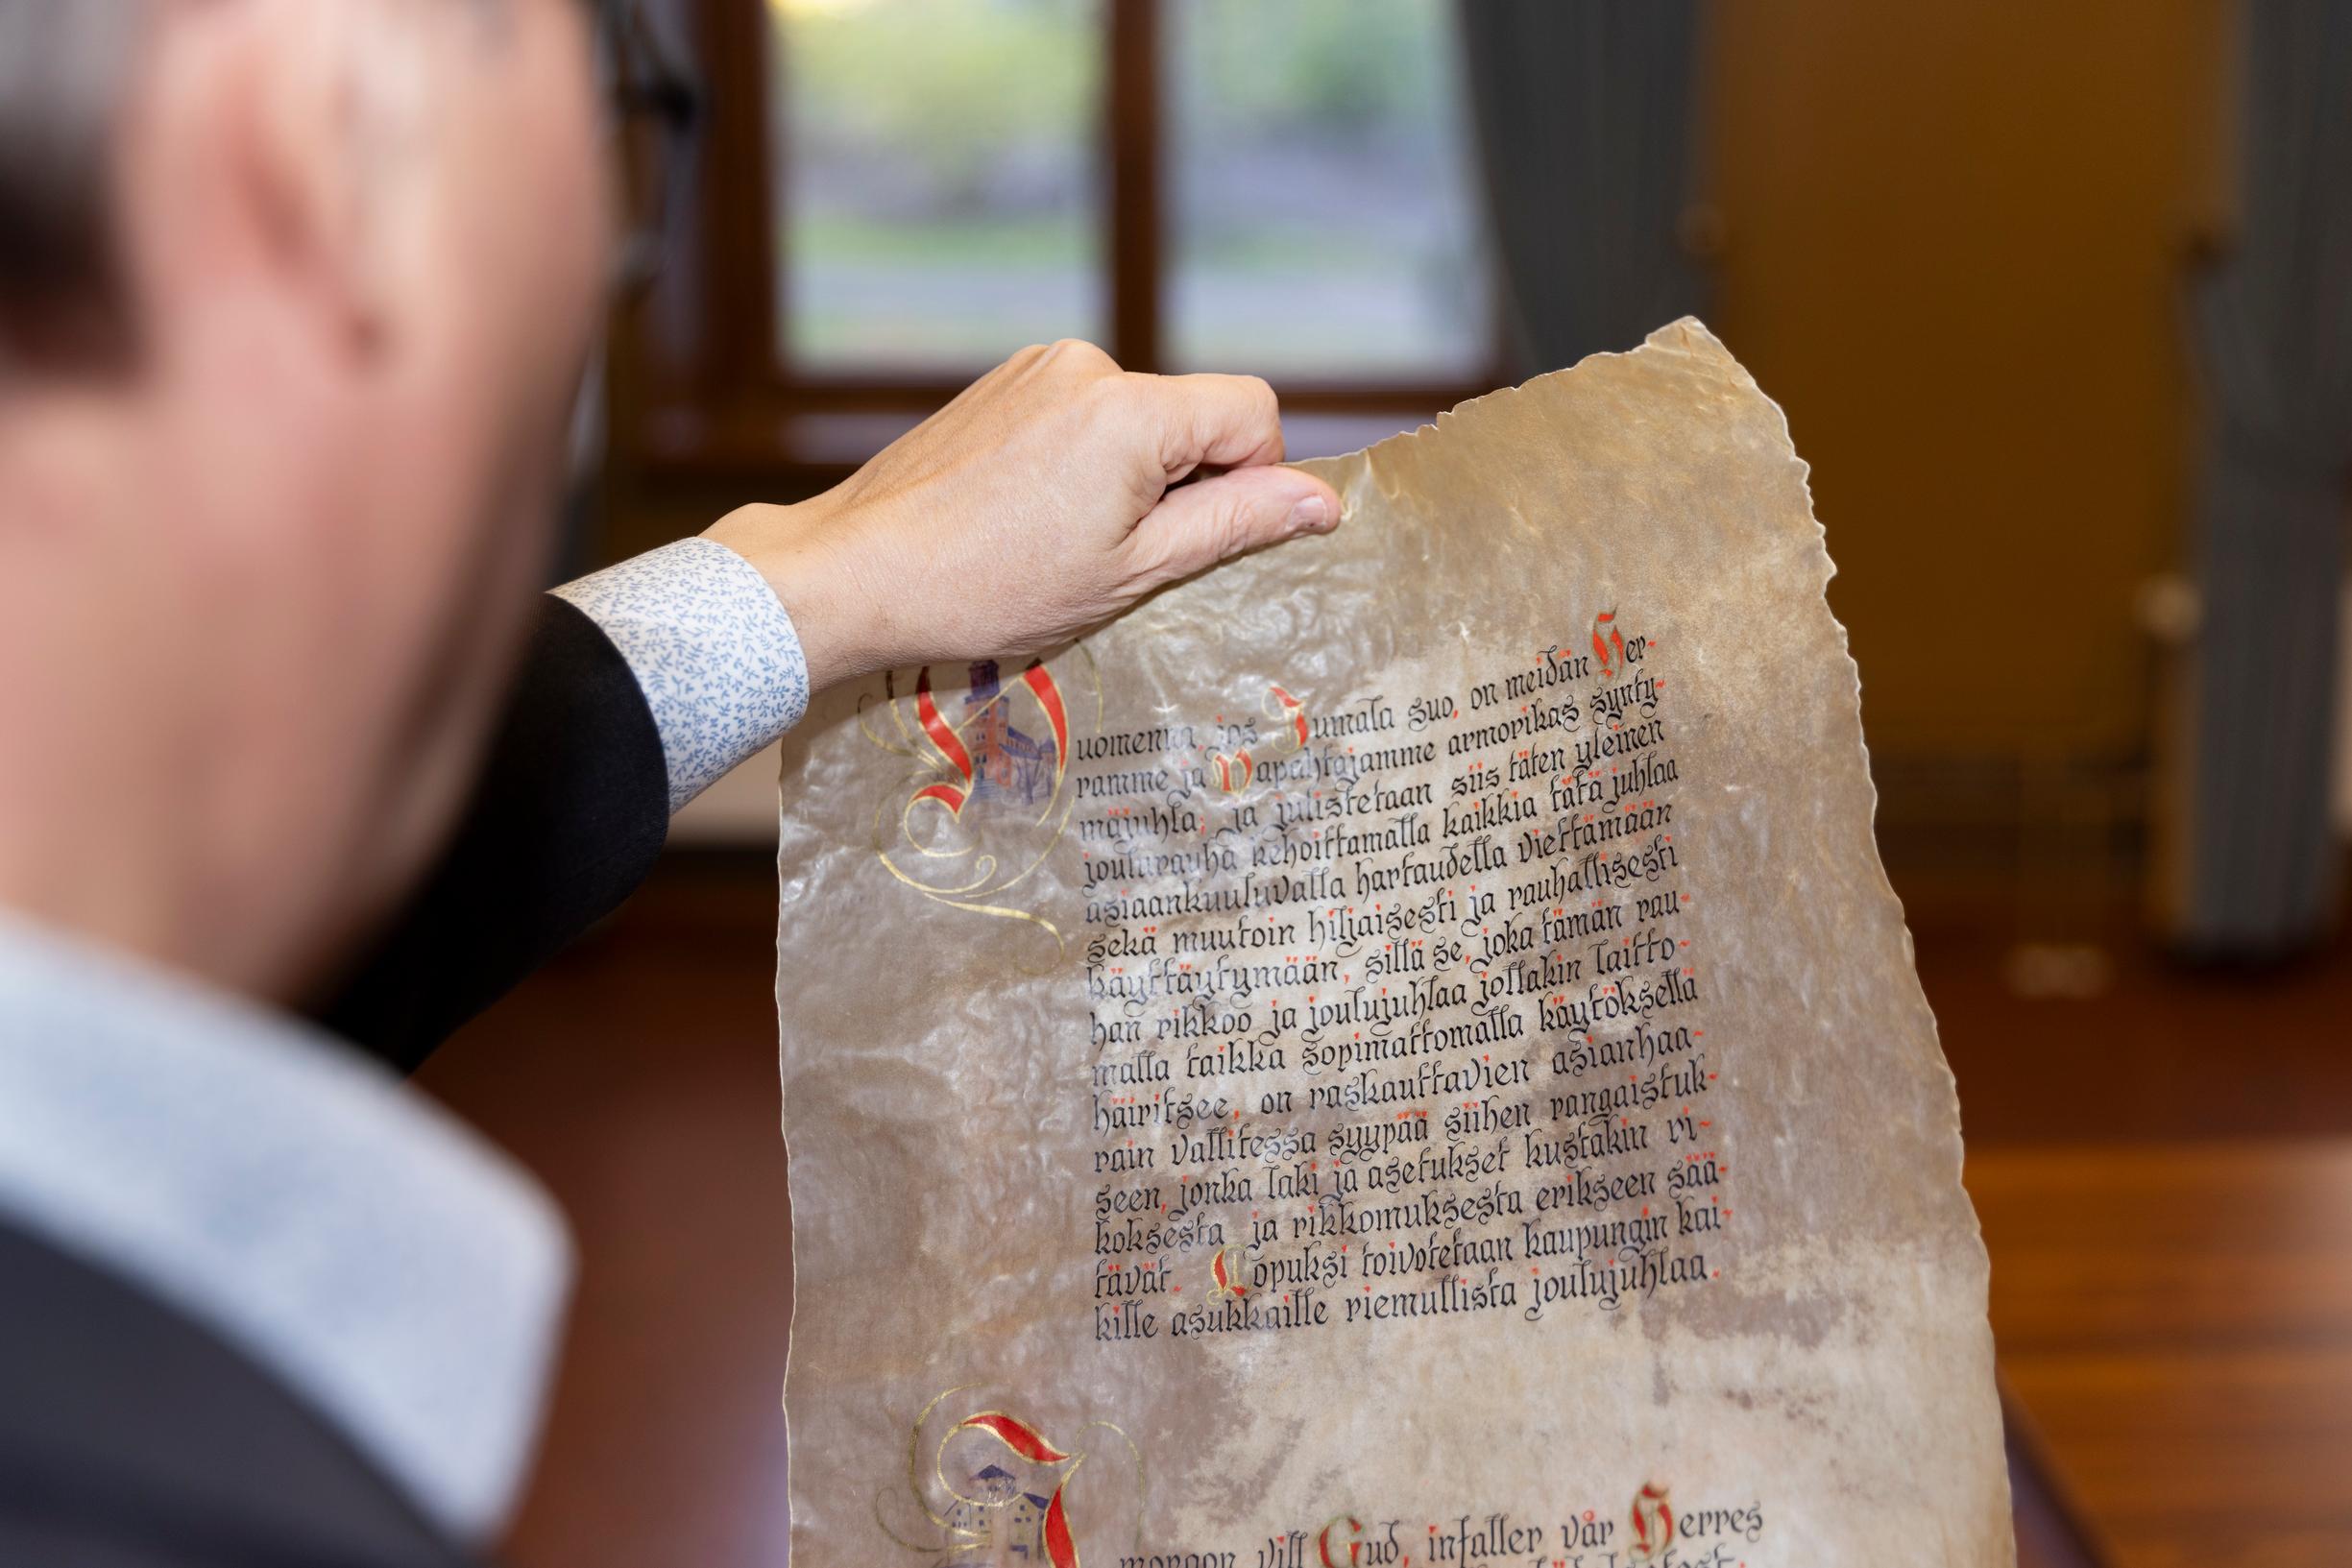 Huomenna, jos Jumala suo, on meidän Her-
ramme ja Vapahtajamme armorikas synty-
mäjuhla; ja julistetaan siis täten yleinen
joulurauha kehoittamalla kaikkia tätä juhlaa
asiaankuuluvalla hartaudella viettämään
sekä muutoin hiljaisesti ja rauhallisesti
käyttäytymään, sillä se, joka tämän rau-
han rikkoo ja joulujuhlaa jollakin laitto-
malla taikka sopimattomalla käytöksellä
häiritsee, on raskauttavien asianhaa-
rain vallitessa syypää siihen rangaistuk-
seen, jonka laki ja asetukset kustakin ri-
koksesta ja rikkomuksesta erikseen sää-
tävät. Lopuksi toivotetaan kaupungin kai-
kille asukkaille riemullista joulujuhlaa.
I morgon, vill Gud, infaller vår Herres